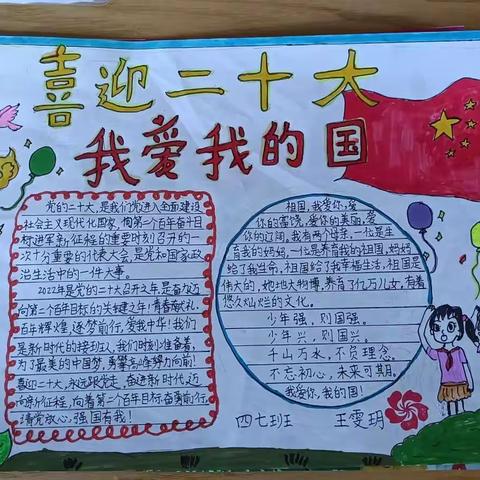 喜迎二十大
我爱我的国
党的二十大,是我们党进入全面建设
社会主义现代化国家,向第二个百年奋斗目
标进军新征程的重要时刻召开的一
次十分重要的代表大会,是党和国家政
治生活中的一件大事。
2022年是党的二十大召开之年,是奋力迈
向第二个百年目标的关键之年!青春献礼,
百年辉煌,逐梦前行,爱我中华!我们
是新时代的接班人,我们时刻准备着,
为了最美的中国梦,勇攀高峰努力向前!
喜迎二十大,永远跟党走,奋进新时代,迈
向新征程,向着第二个百年目标,奋勇前行,
请党放心,强国有我!
祖国,我爱你,爱
你的富饶,爱你的美丽,爱
你的辽阔。我有两个母亲,一位是生
育我的妈妈,一位是养育我的祖国,妈妈
给了我生命,祖国给了我幸福生活,祖国是
伟大的,她地大物博,养育了亿万儿女,有着
悠久灿烂的文化。
少年强,则国强。
少年兴,则国兴。
千山万水,不负理念。
不忘初心,未来可期。
我爱你,我的国!
四七班 王雯玥